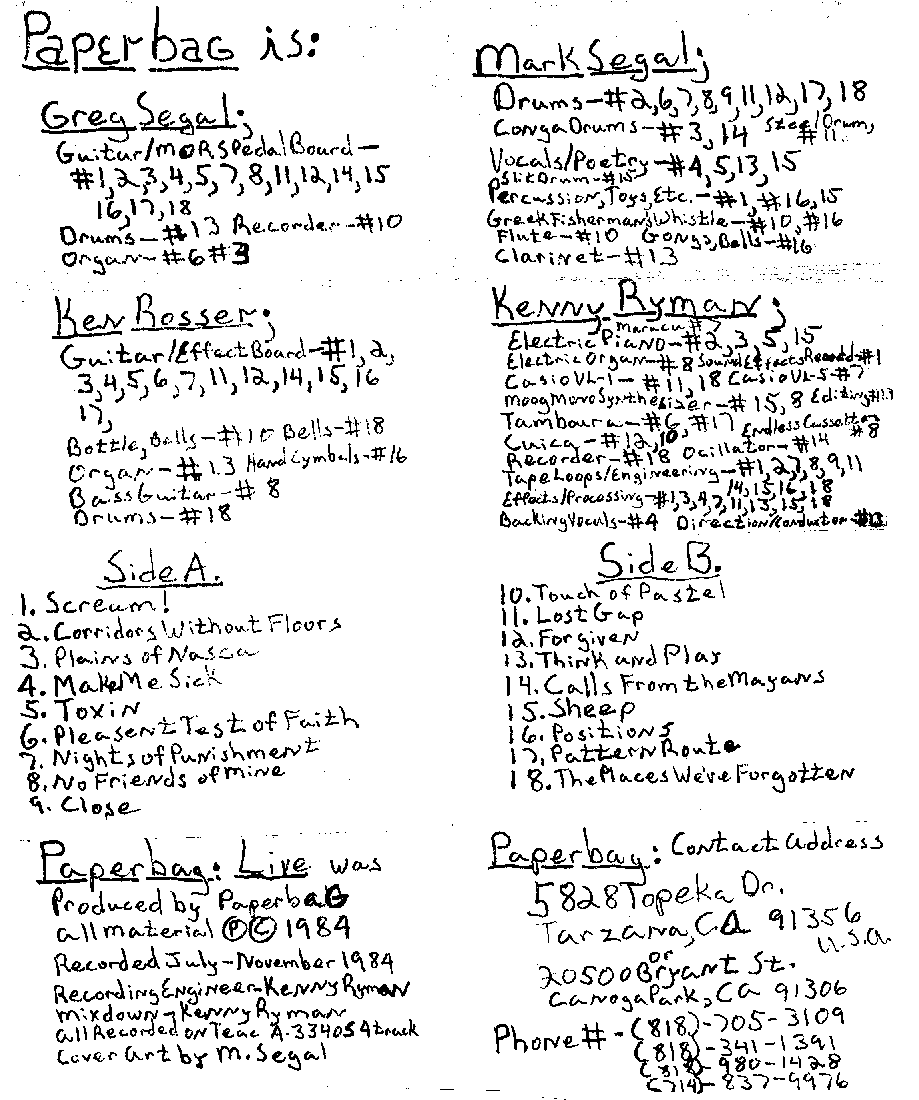 Paperbag is:
Greg Segal;
Guitar/MORSPedalBoard-
#1,2,3,4,5,7,8,11,12,14,15
16,17,18
Drums-#13 Recorder-#10
Organ-#6#3
Mark Segal;
Drums-#2,6,7,8,9,11,12,17,18
CongaDrums-#3,14 Steel Drum, #11
Vocals/Poetry-#4,5,13,15
SlitDrum-#15
Percussion,Toys,Etc.-#1,#16,15
GreekFishermansWhistle-#10,#16
Flute-#10 Gongs,Bells-#16
Clarinet-#13
Ken Rosser;
Guitar/EffectBoard-#1,2,
3,4,5,6,7,11,12,14,15,16
17,
Bottle,Bells-#10 Bells-#18
Organ-#13 HandCymbals-#16
BassGuitar-#8
Drums-#18
Kenny Ryman;
Maraca #7
ElectricPiano-#2,3,5,15
ElectricOrgan-#8 SoundEffectsRecord-#1
CasioVL-1-#11,18 CasioVL-5-#7
MoogMonoSynthesizer-#15,8 Editing#13
Tamboura-#6,#17 EndlessCassette
Cuica-#12,10, #8
Recorder-#18 Ocillator-#14
TapeLoops/Engineering-#1,2,7,8,9,11
14,15,16,18
Effects/Processing-#1,3,4,7,11,13,15,18
BackingVocals-#4 Direction/Conductor-#13
Side A.
1. Scream!
2. Corridors Without Floors
3. Plains of Nasca
4. Make Me Sick
5. Toxin
6. Pleasent Test of Faith
7. Nights of Punishment
8. No Friends of Mine
9. Close
Side B.
10. Touch of Pastel
11. Lost Gap
12. Forgiven
13. Think and Play
14. Calls From the Mayans
15. Sheep
16. Positions
17. Pattern Route
18. The Places We've Forgotten
Paperbag: Live was
Produced by Paperbag
all material ℗© 1984
Recorded July-November 1984
Recording Engineer-Kenny Ryman
mixdown-Kenny Ryman
all Recorded on Teac A-3340S 4 track
Cover Art by M. Segal
Paperbag: Contact address
5828 Topeka Dr.
Tarzana, CA 91356
U.S.A.
or
20500 Bryant St.
Canoga Park, CA 91306
Phone#-(818)-705-3109
(818)-341-1391
(818)-980-1428
(714)-837-9976